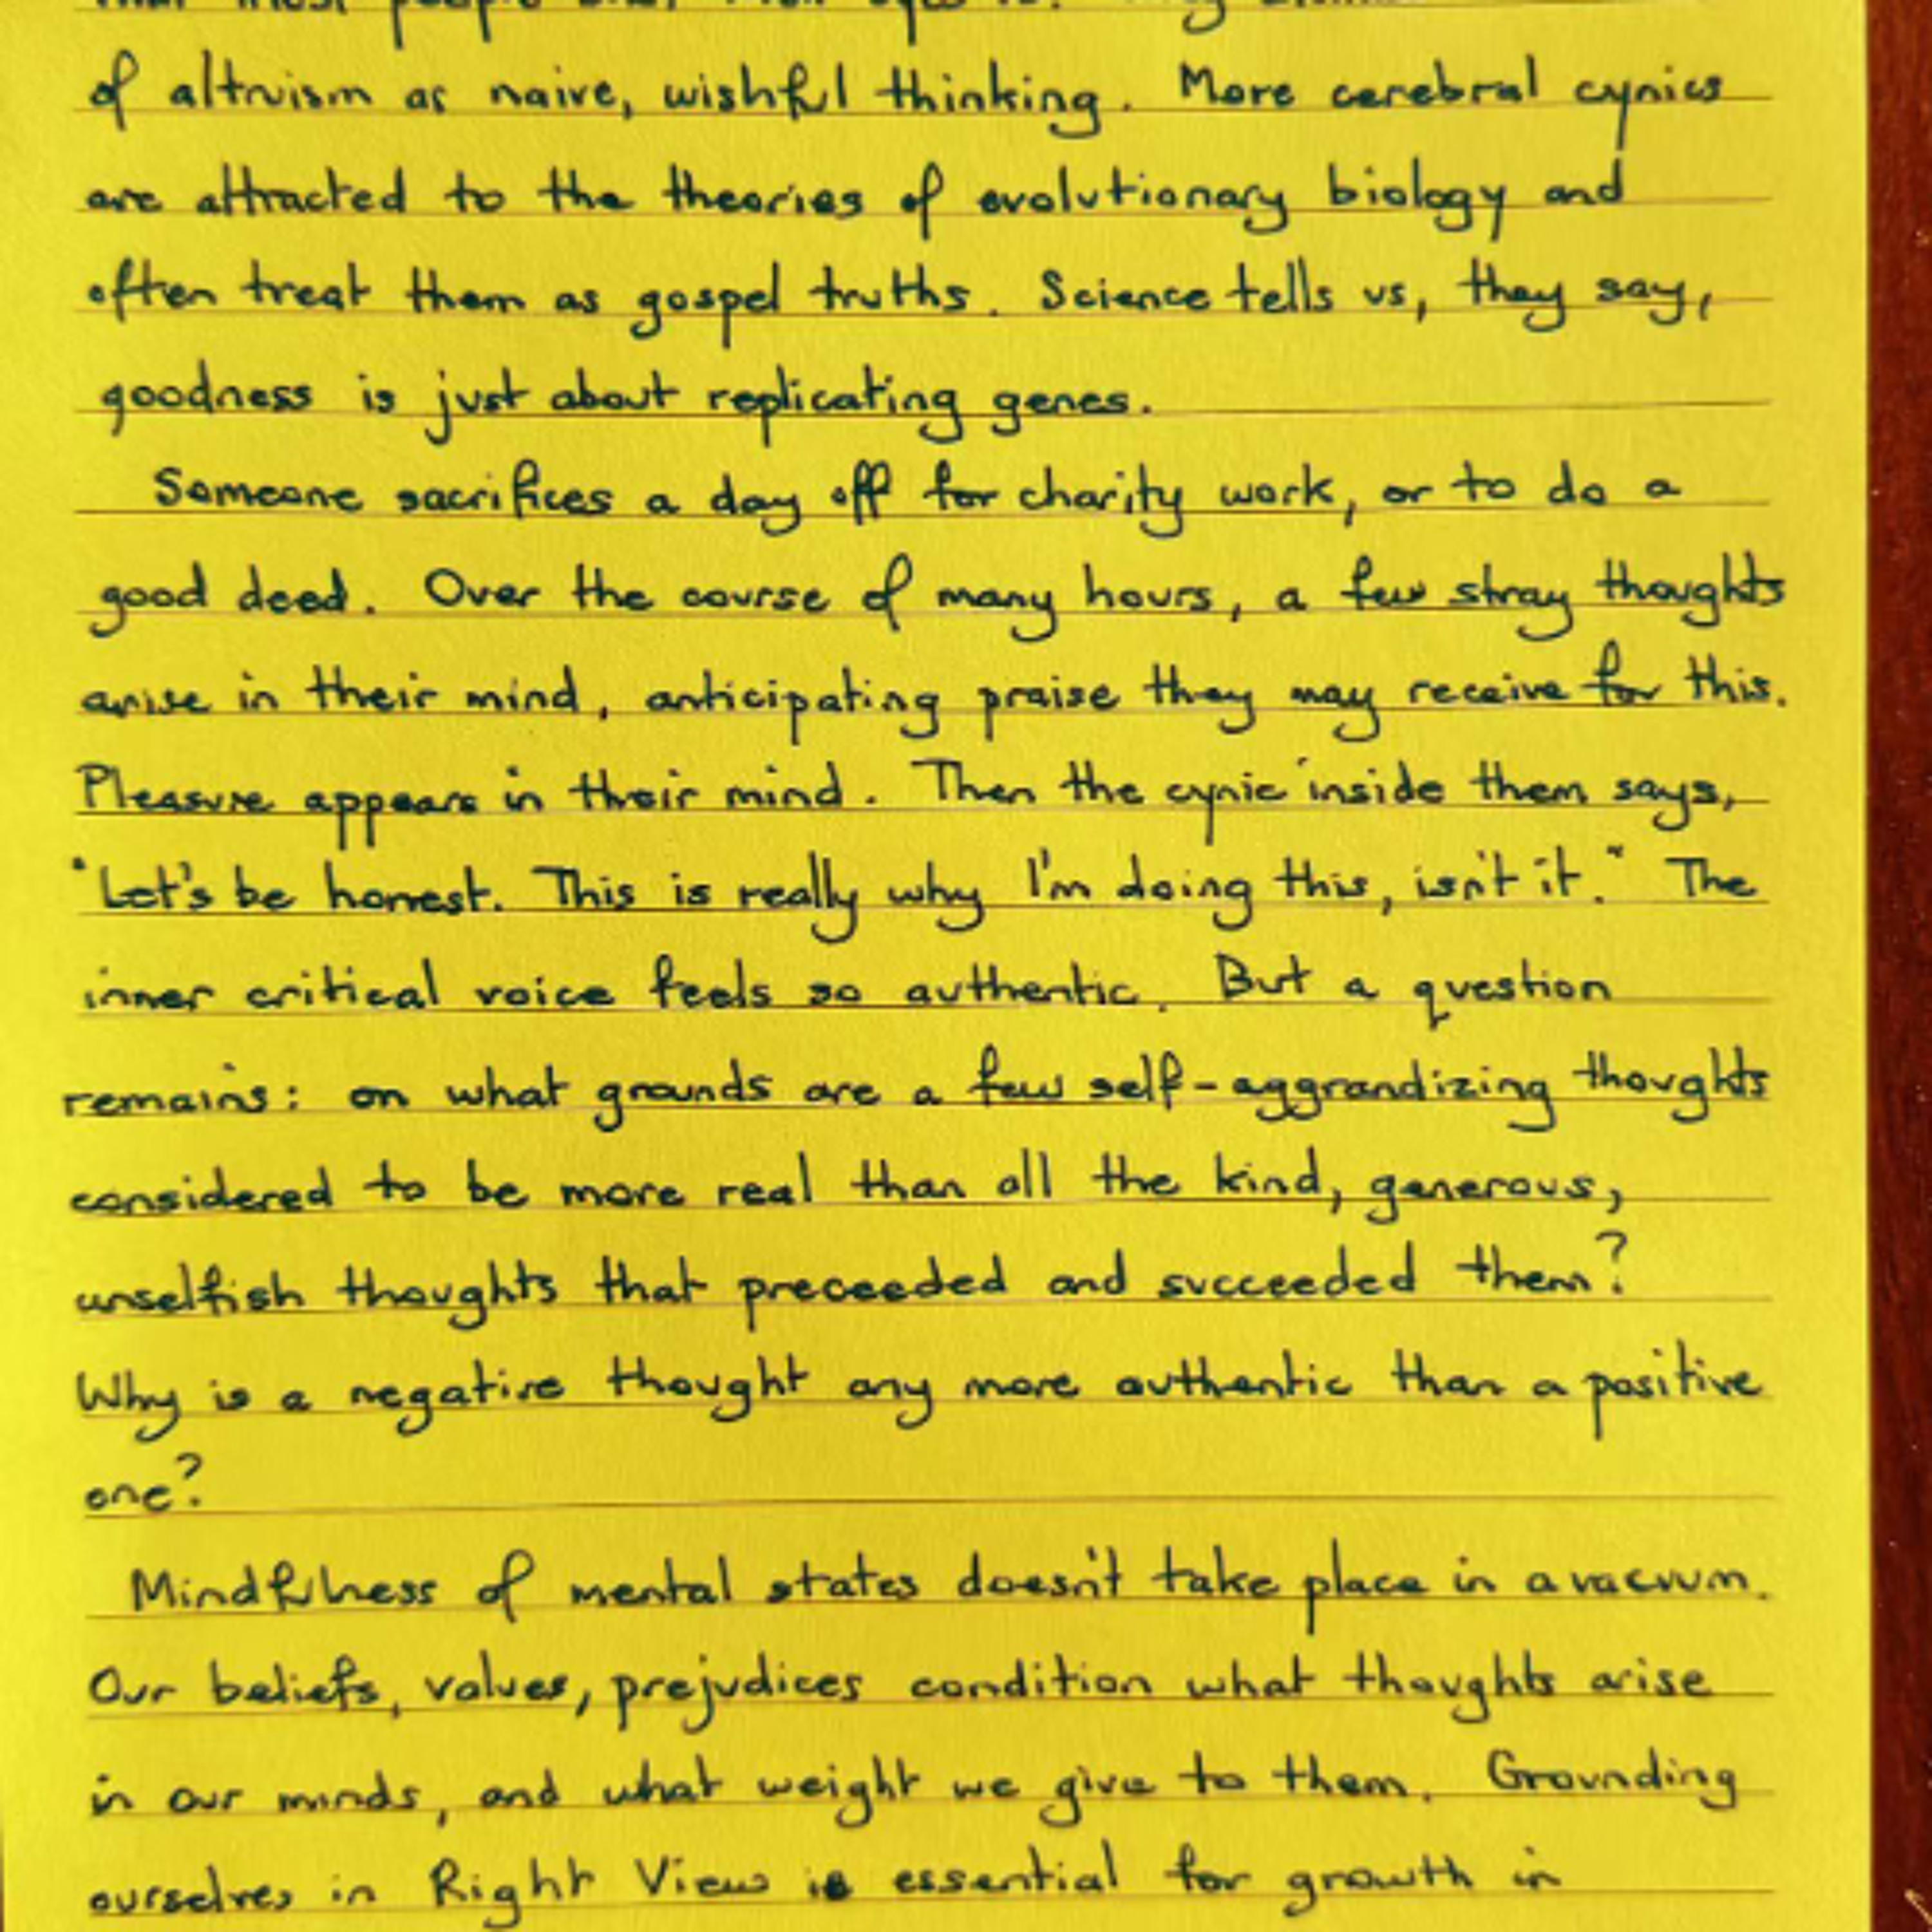 that most people
of altruism as naive, wishful thinking. More cerebral cynics
are attracted to the theories of evolutionary biology and
often treat them as gospel truths. Science tells us, they say,
goodness is just about replicating genes.
Someone sacrifices a day off for charity work, or to do a
good deed. Over the course of many hours, a few stray thoughts
arise in their mind, anticipating praise they may receive for this.
Pleasure appears in their mind. Then the cynic inside them says,
"Let's be honest. This is really why I'm doing this, isn't it." The
inner critical voice feels so authentic. But a question
remains: on what grounds are a few self-aggrandizing thoughts
considered to be more real than all the kind, generous,
unselfish thoughts that preceeded and succeeded them?
Why is a negative thought any more authentic than a positive
one?
Mindfulness of mental states doesn't take place in a vacuum.
Our beliefs, values, prejudices condition what thoughts arise
in our minds, and what weight we give to them. Grounding
ourselves in Right View is essential for growth in